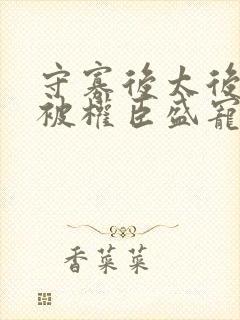 守寡後太後
被權臣盛寵
香菜菜